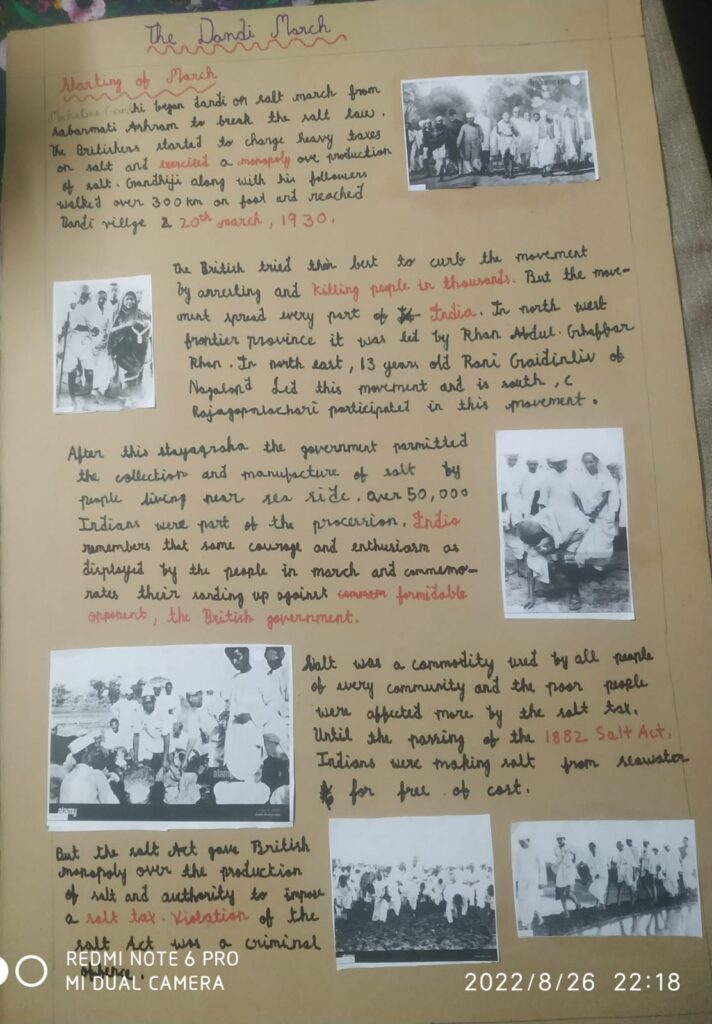 The Dandi March
Starting of March
Mahatma Gandhi began dandi or salt march from
sabarmati Ashram to break the salt law.
The Britishers started to charge heavy taxes
on salt and exercised a monopoly ove production
of salt. Gandhiji along with his followers
walked over 300 km on foot and reached
Dandi villge 20th march, 1930.
The British tried their best to curb the movement
by arresting and killing people in thousands. But the move-
ment spread every part of India. In north west
frontier province it was led by Khan Abdul. Ghaffar
Khan. In north east, 13 years old Rani Gaidinliv of
Nagaland Led this movement and is south, C
Rajagopalachari participated in this movement.
After this stayagraha the government parmitted
the collection and manufacture of salt by
people living near sea side. Over 50,000
Indians were part of the procession. India
remembers that same courage and enthusiasm as
displayed by the people in march and commemo-
rates their sanding up against formidable
opponent, the British government.
Salt was a commodity used by all people
of every community and the poor people
were affected more by the salt tax.
Until the passing of the 1882 Salt Act.
Indians were making salt from seawater
for free of cost.
alamy
But the salt Act gave British
monopoly over the production
of salt and authority to impose
a salt tax. Violation of the
salt Act was a criminal
offence.
REDMI NOTE 6 PRO
MI DUAL CAMERA
2022/8/26 22:18